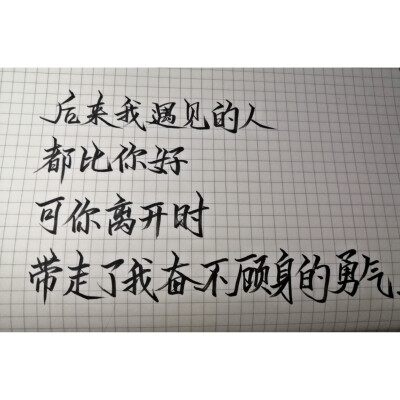 后来我遇见的人
都比你好
可你离开时
带走了我奋不顾身的勇气.